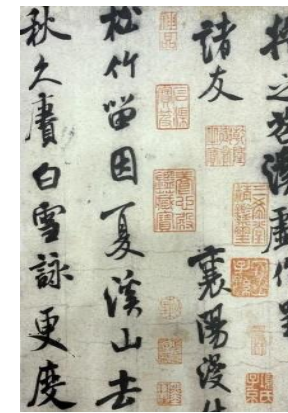 將之苕溪戲作呈
諸友
襄陽漫仕
松竹留因夏溪山去
秋久賡白雪詠更度